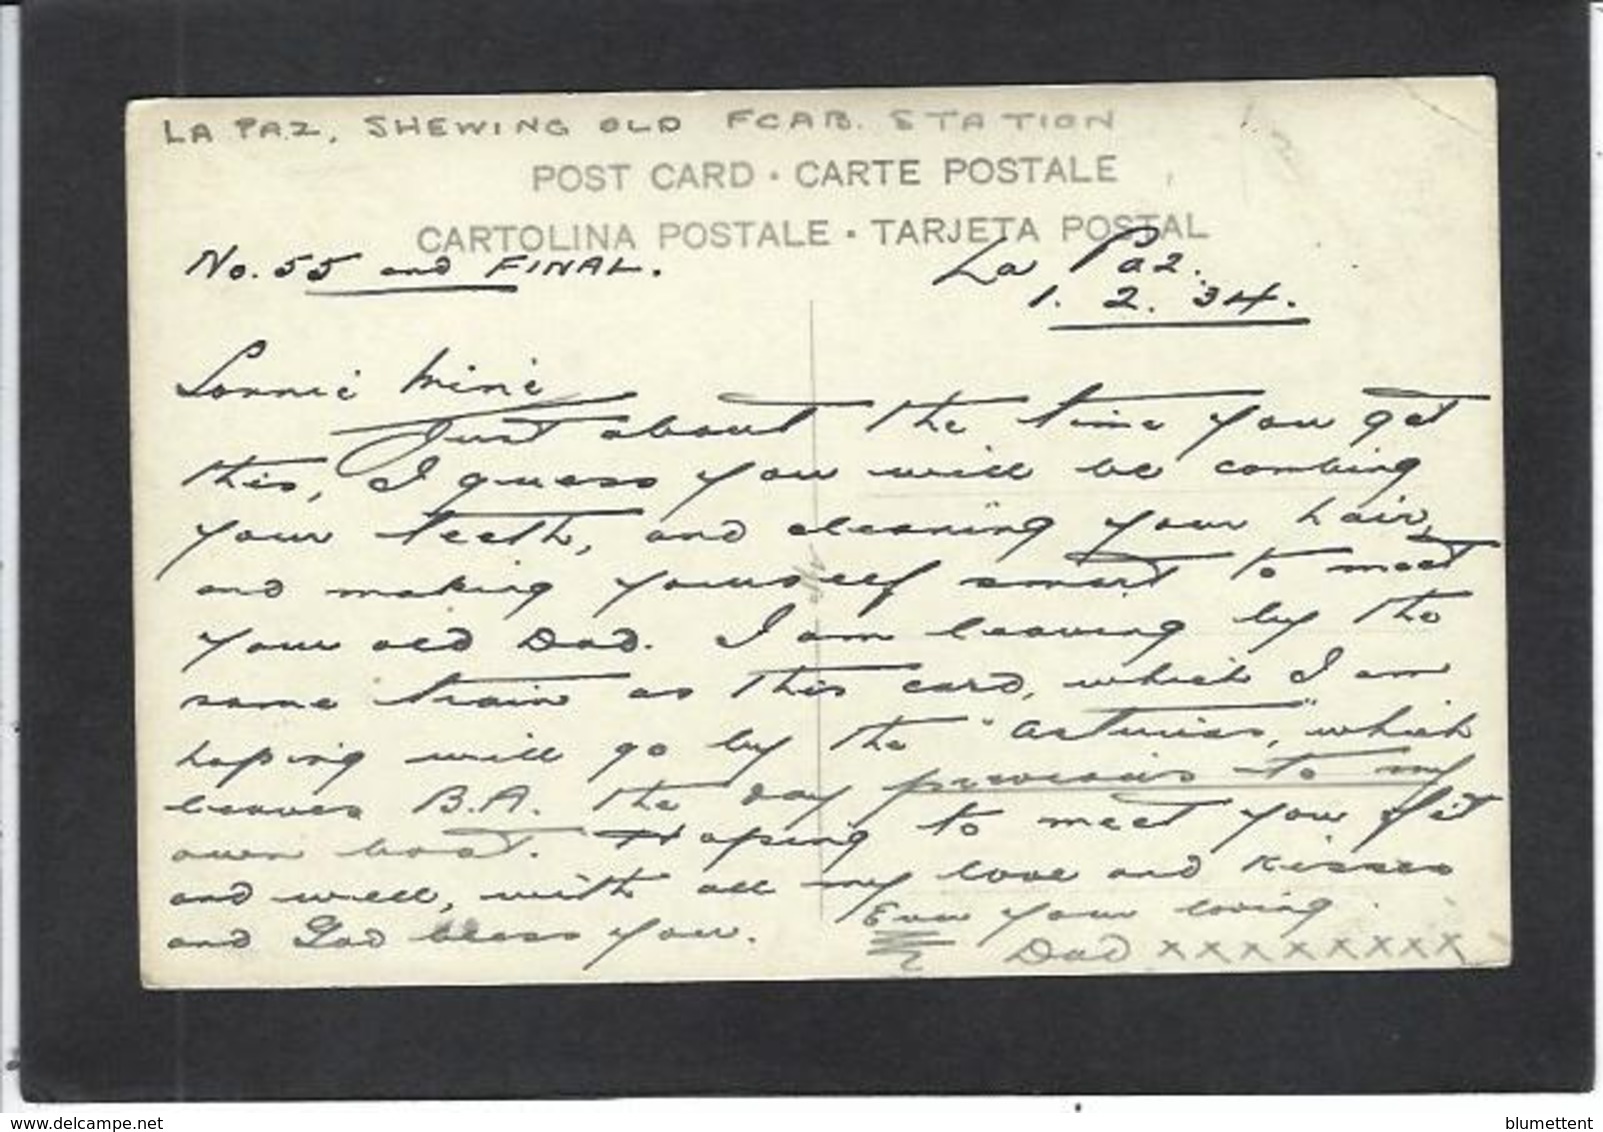 LA PAZ, SHEWING OLD FCAB. STATION
POST CARD · CARTE POSTALE
CARTOLINA POSTALE · TARJETA POSTAL
No. 55 and FINAL.
La Paz.
1. 2. 34.
Sonnie Mine
Just about the time you get
this, I guess you will be combing
your teeth, and cleaning your hair,
and making yourself smart to meet
your old Dad. I am leaving by the
same train as this card, which I am
hoping will go by the "Asturias", which
leaves B.A. the day previous to my
own boat. Hoping to meet you fit
and well, with all my love and kisses
and God bless you. Ever your loving
Dad xxxxxxxx
www.delcampe.net
blumettent